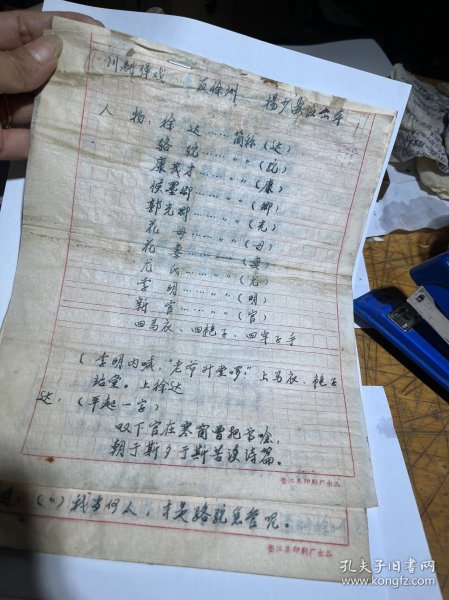 川剧弹戏 反徐州
人物：徐达……简称（达）
骆 ……〃〃（ ）
康茂才……〃〃（康）
侯墨卿……〃〃（卿）
郭光卿……〃〃（光）
花母……〃〃（母）
花妻……〃〃（妻）
尤氏……〃〃（尤）
李明……〃〃（明）
新官……〃〃（官）
四马衣、四袍子、四牢子手
（李明内喊，“老爷升堂啰”上马衣、袍子
站堂。上徐达
达：（平起一字）
叹下官在寒窗曾把苦哈，
朝于斯夕于斯苦读诗篇。
垫江县印刷厂出品
明：（〃）我当何人，才是骆 总管呢。
垫江县印刷厂出品
孔夫子旧书网
www.kongfz.com